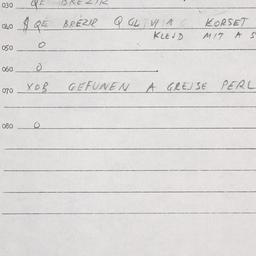 030 QE BREZIR
040 QE BREZIR Q GL KORSET
KLEID MIT A S
050 O
060 O
070 GEFUNEN A GREISE PERL
080 O